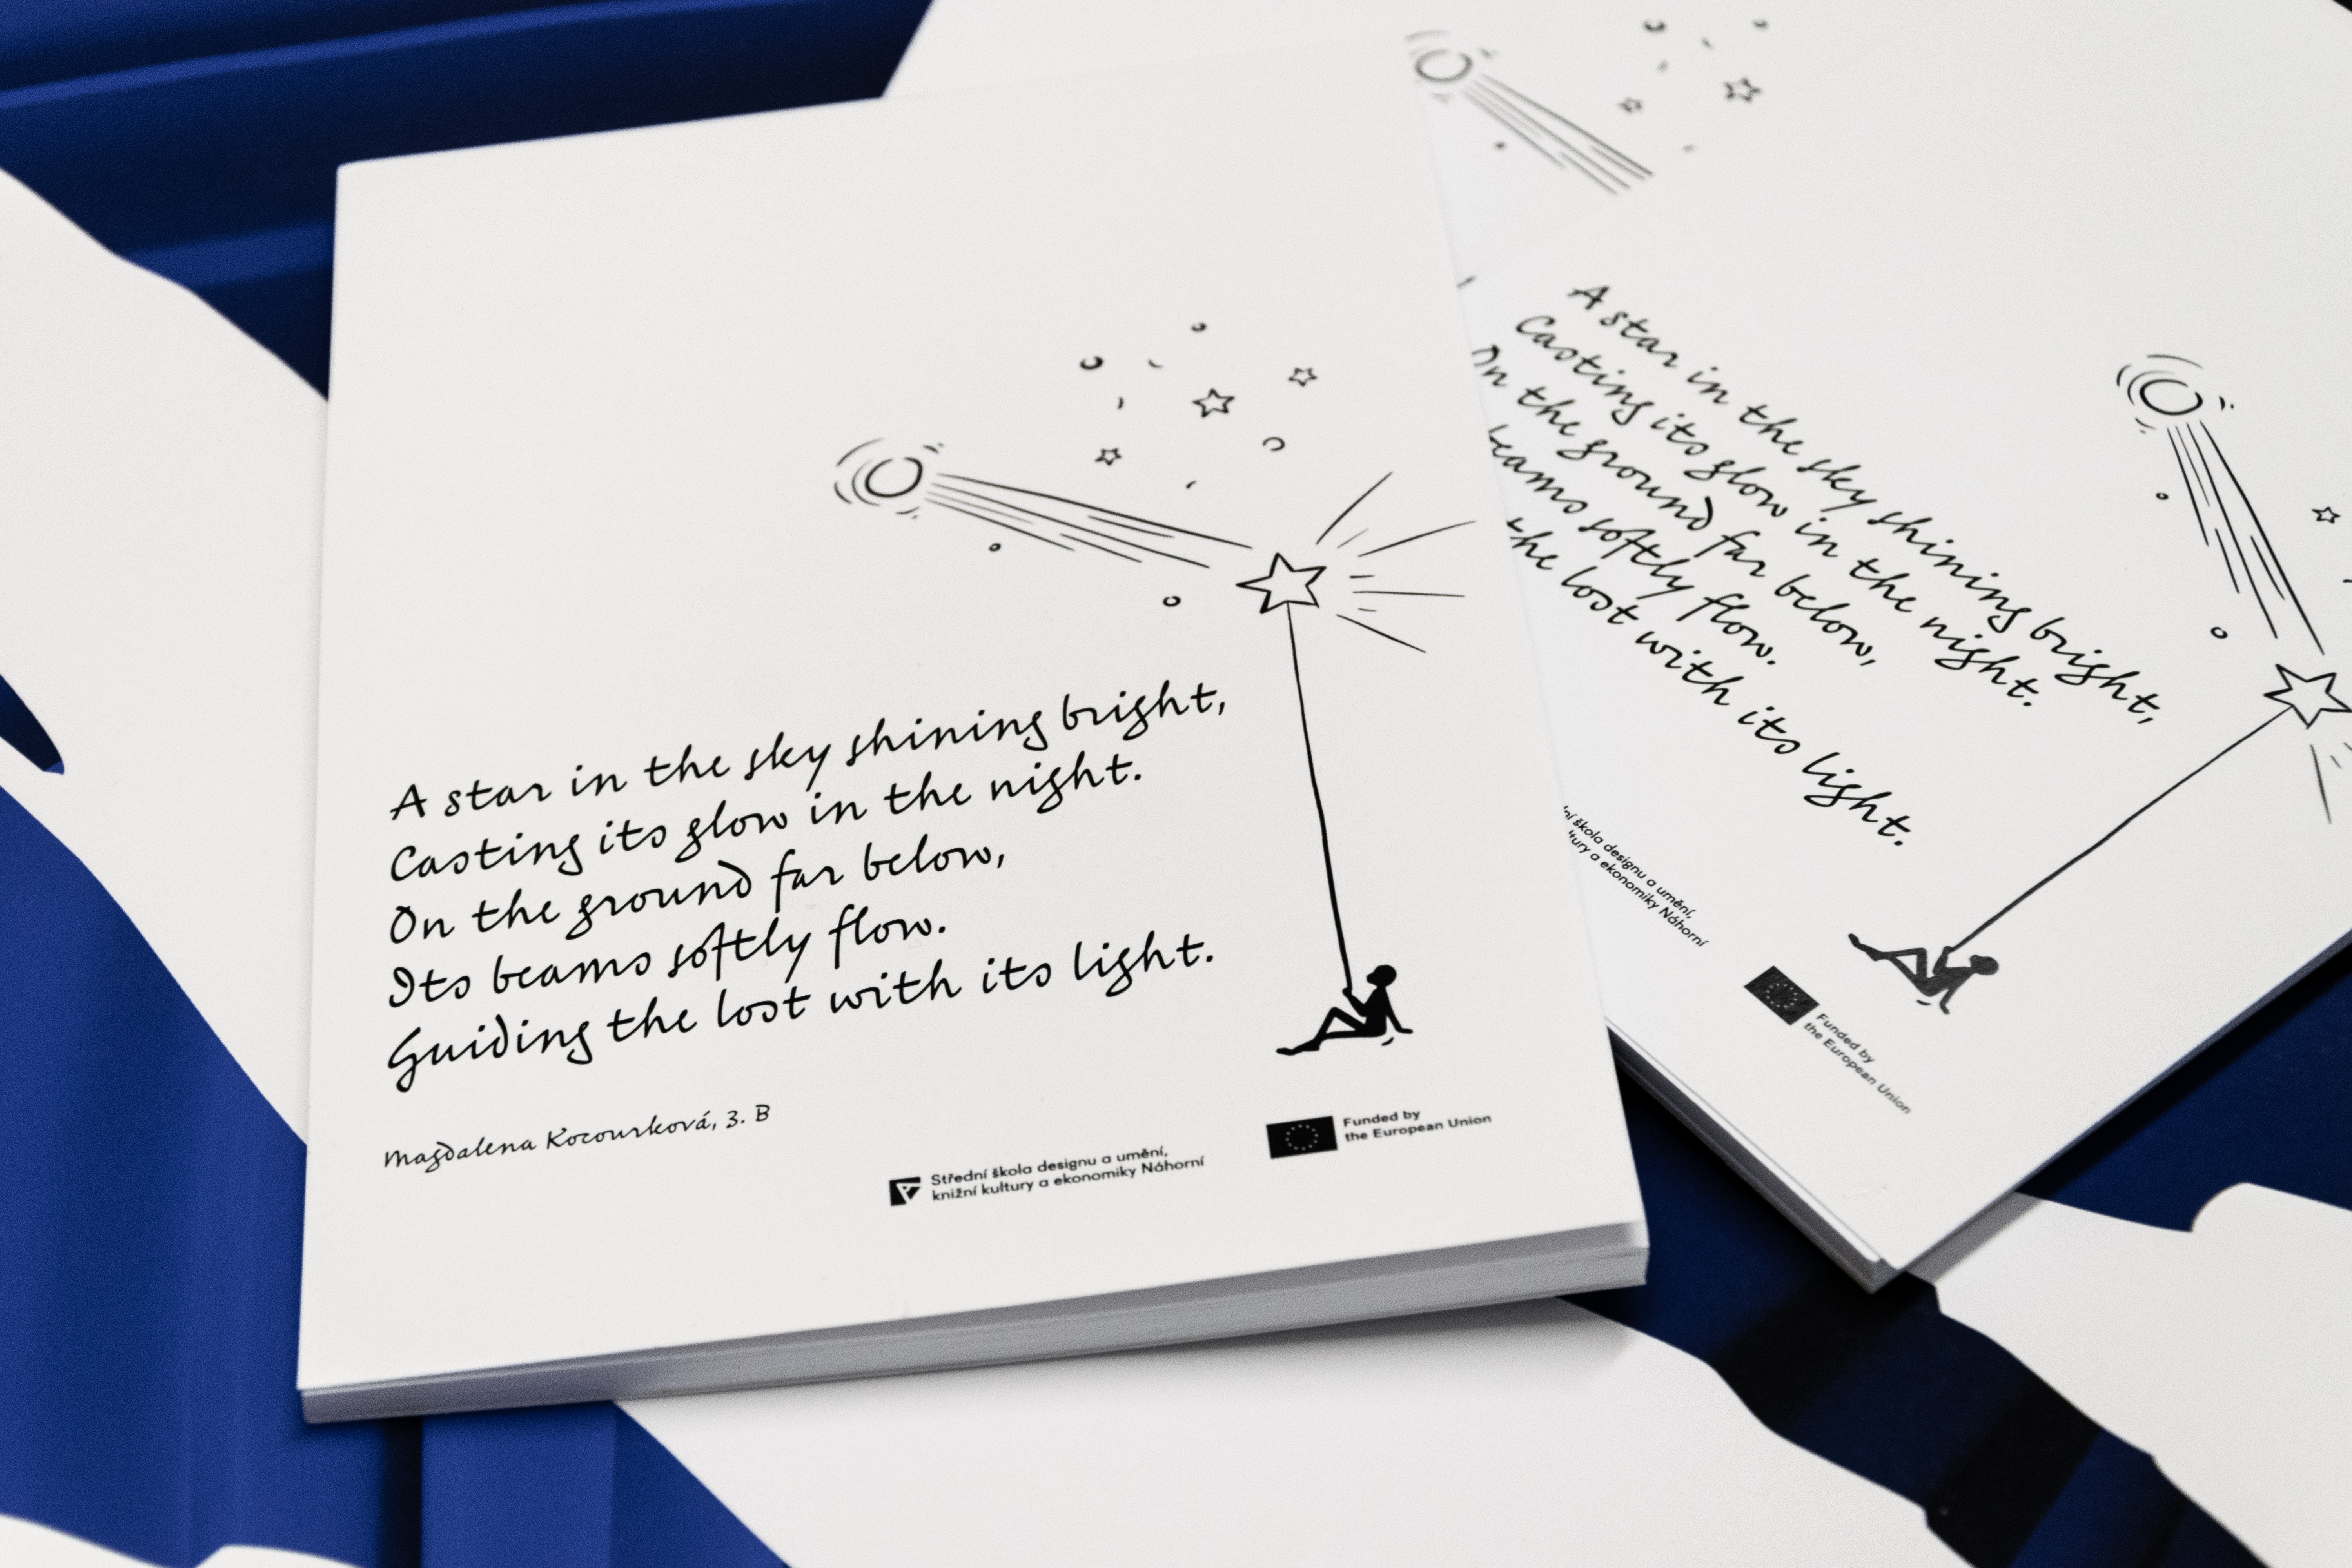 A star in the sky shining bright,
Casting its glow in the night.
On the ground far below,
Its beams softly flow.
Guiding the lost with its light.
Magdalena Kocourková, 3. B
Střední škola designu a umění,
knižní kultury a ekonomiky Náhorní
Funded by
the European Union
A star in the sky shining bright,
Casting its glow in the night.
On the ground far below,
beams softly flow.
the lost with its light.
škola designu a umění,
a ekonomiky Náhorní
Funded by
the European Union